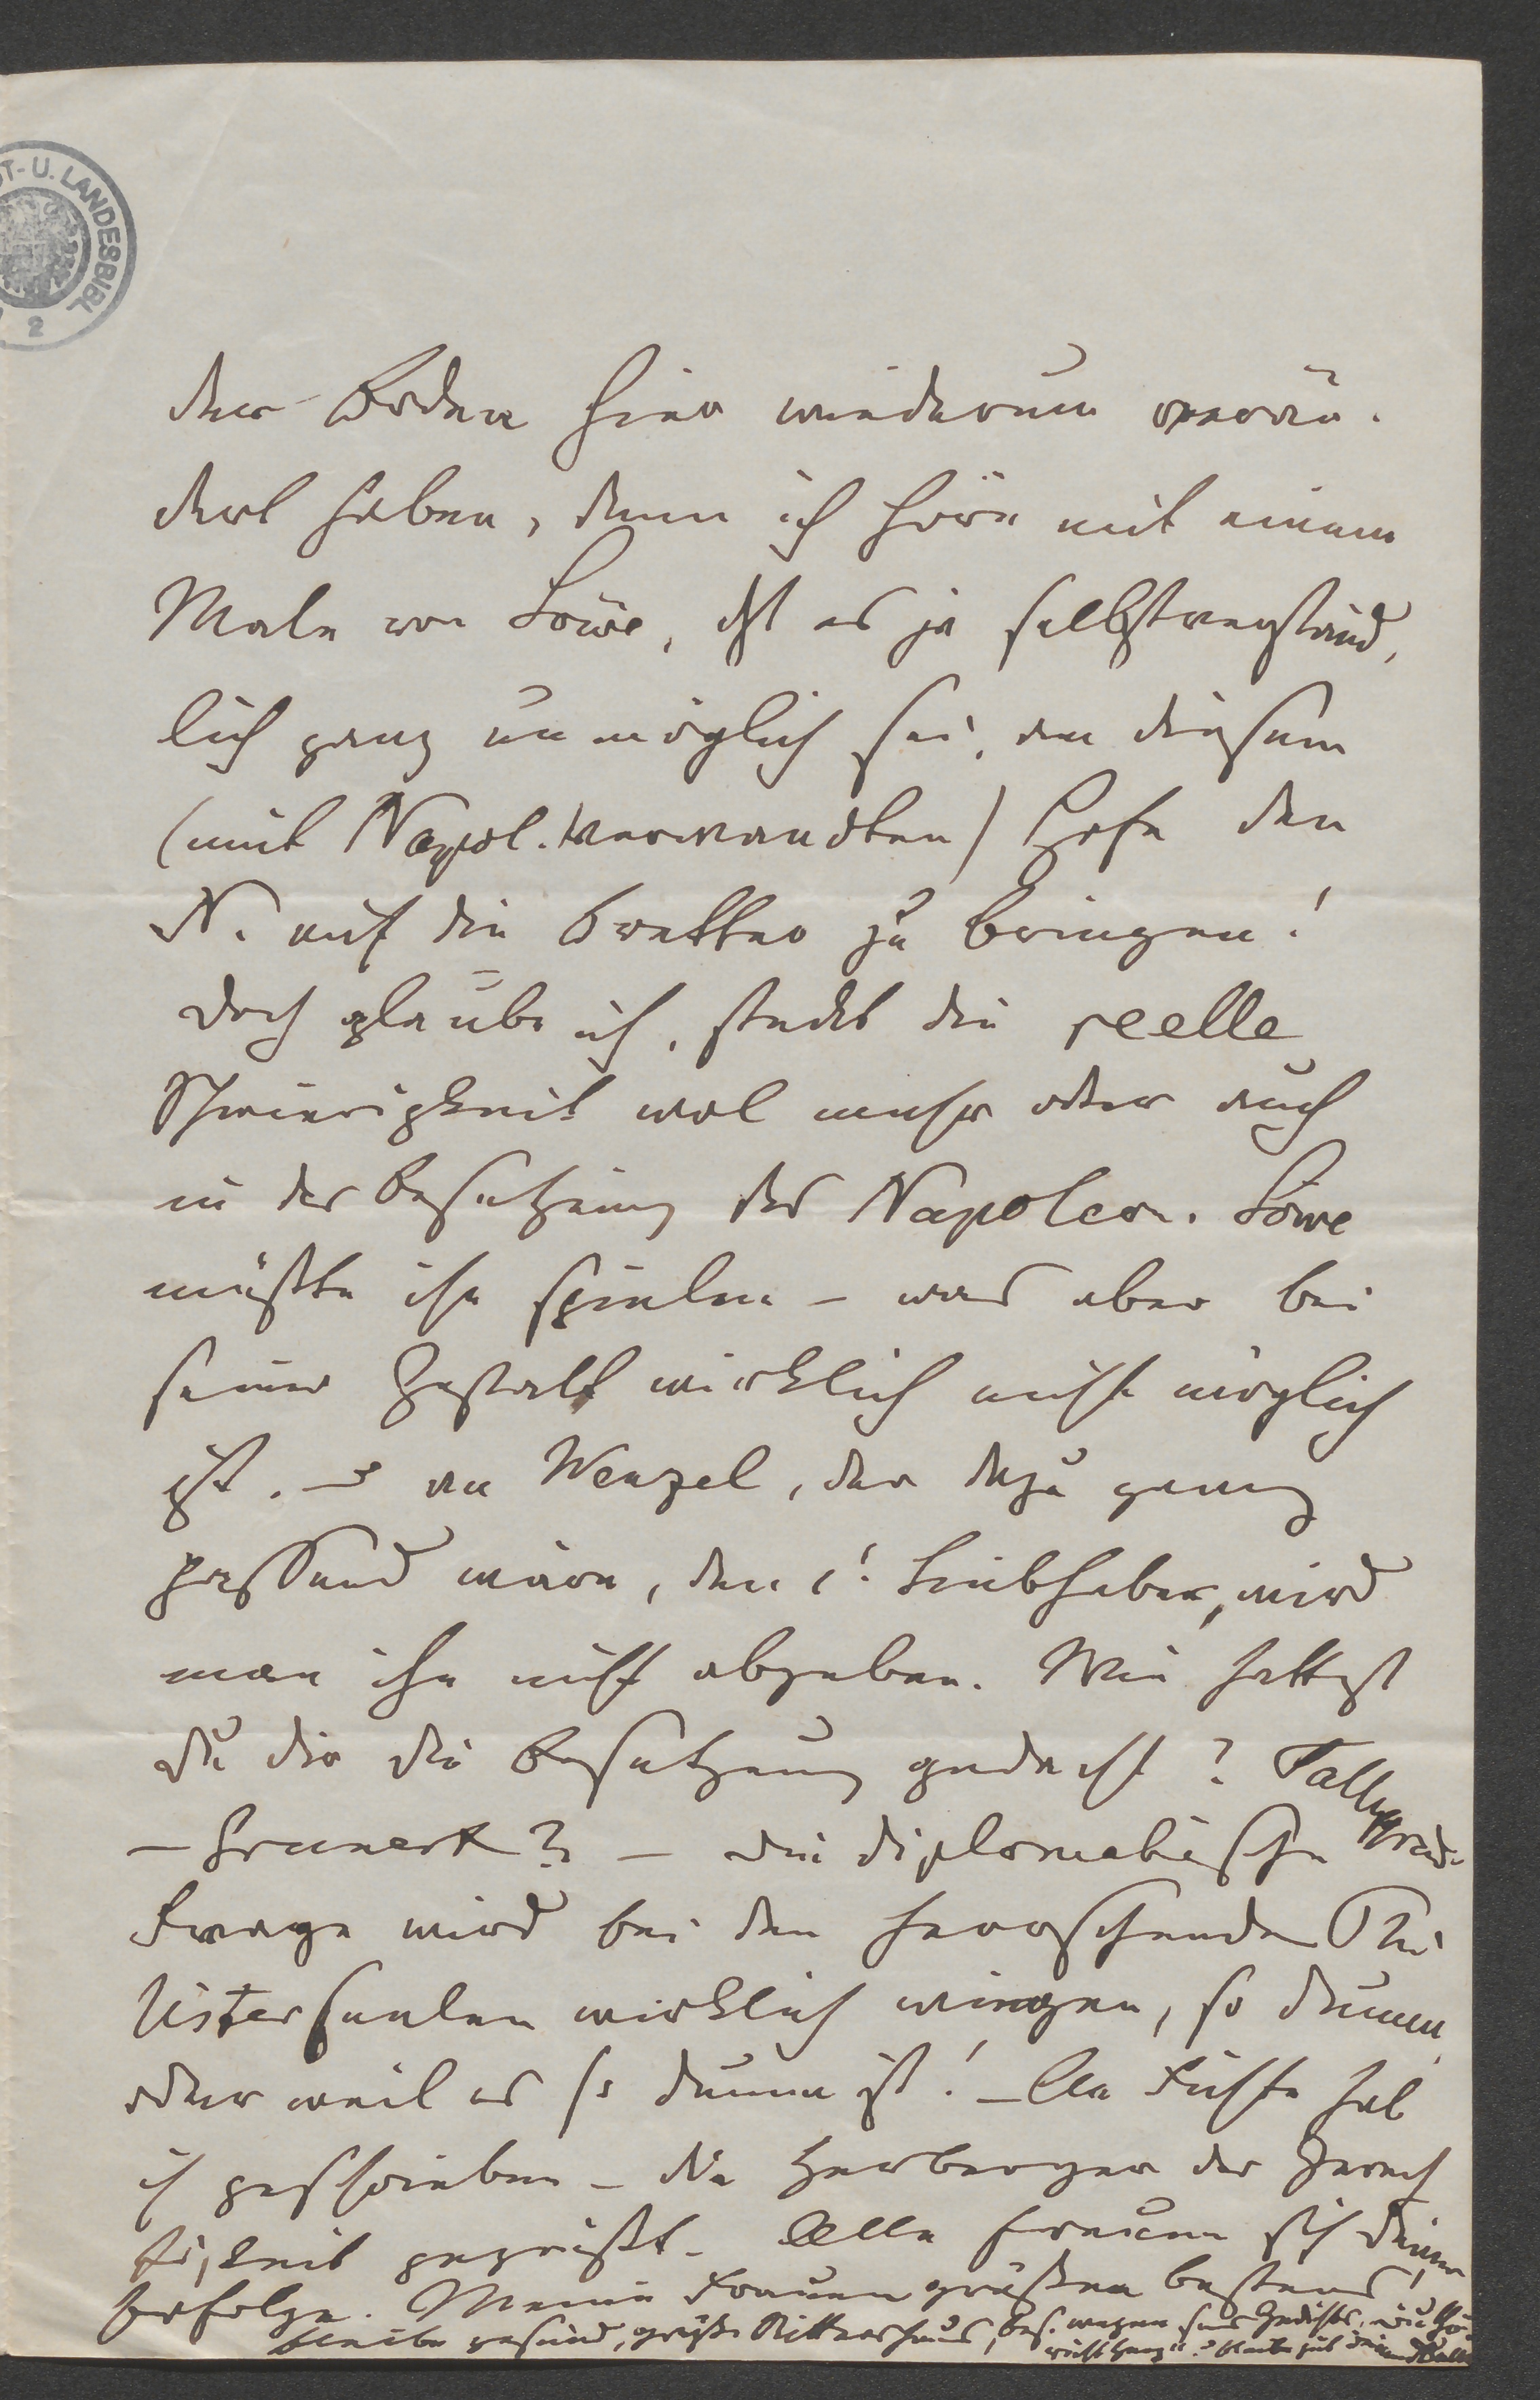 T- U. LANDESBIBL
2
der Boden hier wiederum verän-
dert haben, denn ich höre mit einem
Male von Löwe, dß es ja selbstverständ,
lich ganz unmöglich sei, an diesem
(mit Napol. verwandten) Hofe den
N. auf die Bretter zu bringen!
Doch glaube ich, steckt die reelle
Schwierigkeit wol mehr oder auch
in der Besetzung des Napoleon. Löwe
müßte ihn spielen – was aber bei
seiner Gestalt wirklich nicht möglich
ist. – an Wenzel, der dazu ganz
passend wäre, den 1! Liebhaber, wird
man ihn nicht abgeben. Wie hattest
du dir die Besetzung gedacht? Talleyrand-
– Grunert? – die diplomatische
Frage wird bei den herrschenden Phi
listerseelen wirklich wiegen, so dumm,
oder weil es so dumm ist! – An Fichte hab
ich geschrieben – die Herberger der Gerech
tigkeit gegrüßt. Alle freuen sich deiner
Erfolge. Meine Frauen grüßen bestens!
bleibe gesund, grüße Rittershaus, bes. wegen seines Gedichts.
bleibe gut